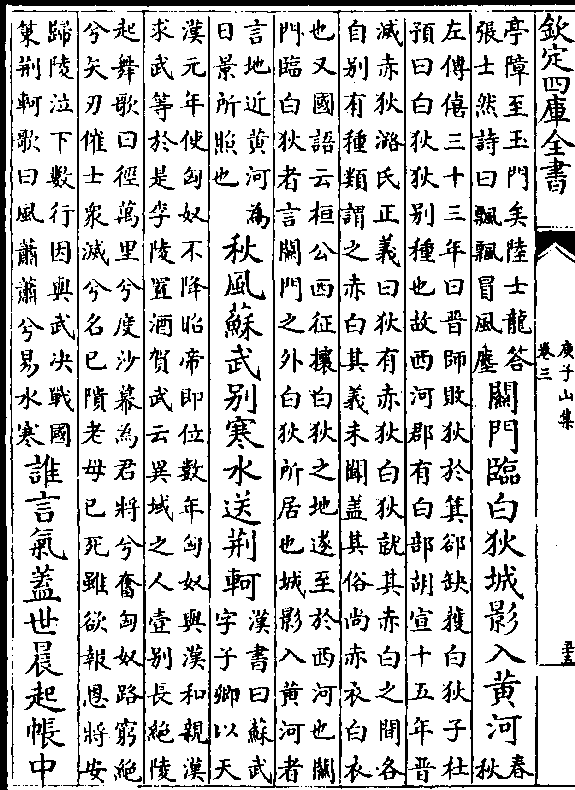 欽定四庫全書
庾子山集
卷三
亭障至玉門矣陸士龍答
張士然詩曰飄飄冒風塵
關門臨白狄城影入黄河
春
秋
左傳僖三十三年曰晉師敗狄於箕郤缺獲白狄子杜
預曰白狄狄别種也故西河郡有白部胡宣十五年晉
滅赤狄潞氏正義曰狄有赤狄白狄就其赤白之間各
自别有種類謂之赤白其義未聞盖其俗尚赤衣白衣
也又國語云桓公西征攘白狄之地遂至於西河也關
門臨白狄者言關門之外白狄所居也城影入黄河者
言地近黄河為
日景所照也
秋風蘇武别寒水送荆軻
漢書曰蘇武
字子卿以天
漢元年使匈奴不降昭帝即位數年匈奴與漢和親漢
求武等於是李陵置酒賀武云異域之人壹别長絶陵
起舞歌曰徑萬里兮度沙幕為君將兮奮匈奴路窮絶
兮矢刃傕士衆滅兮名已隤老母已死雖欲報恩將安
歸陵泣下數行因與武決戰國
策荆軻歌曰風蕭蕭兮易水寒
誰言氣盖世晨起帳中